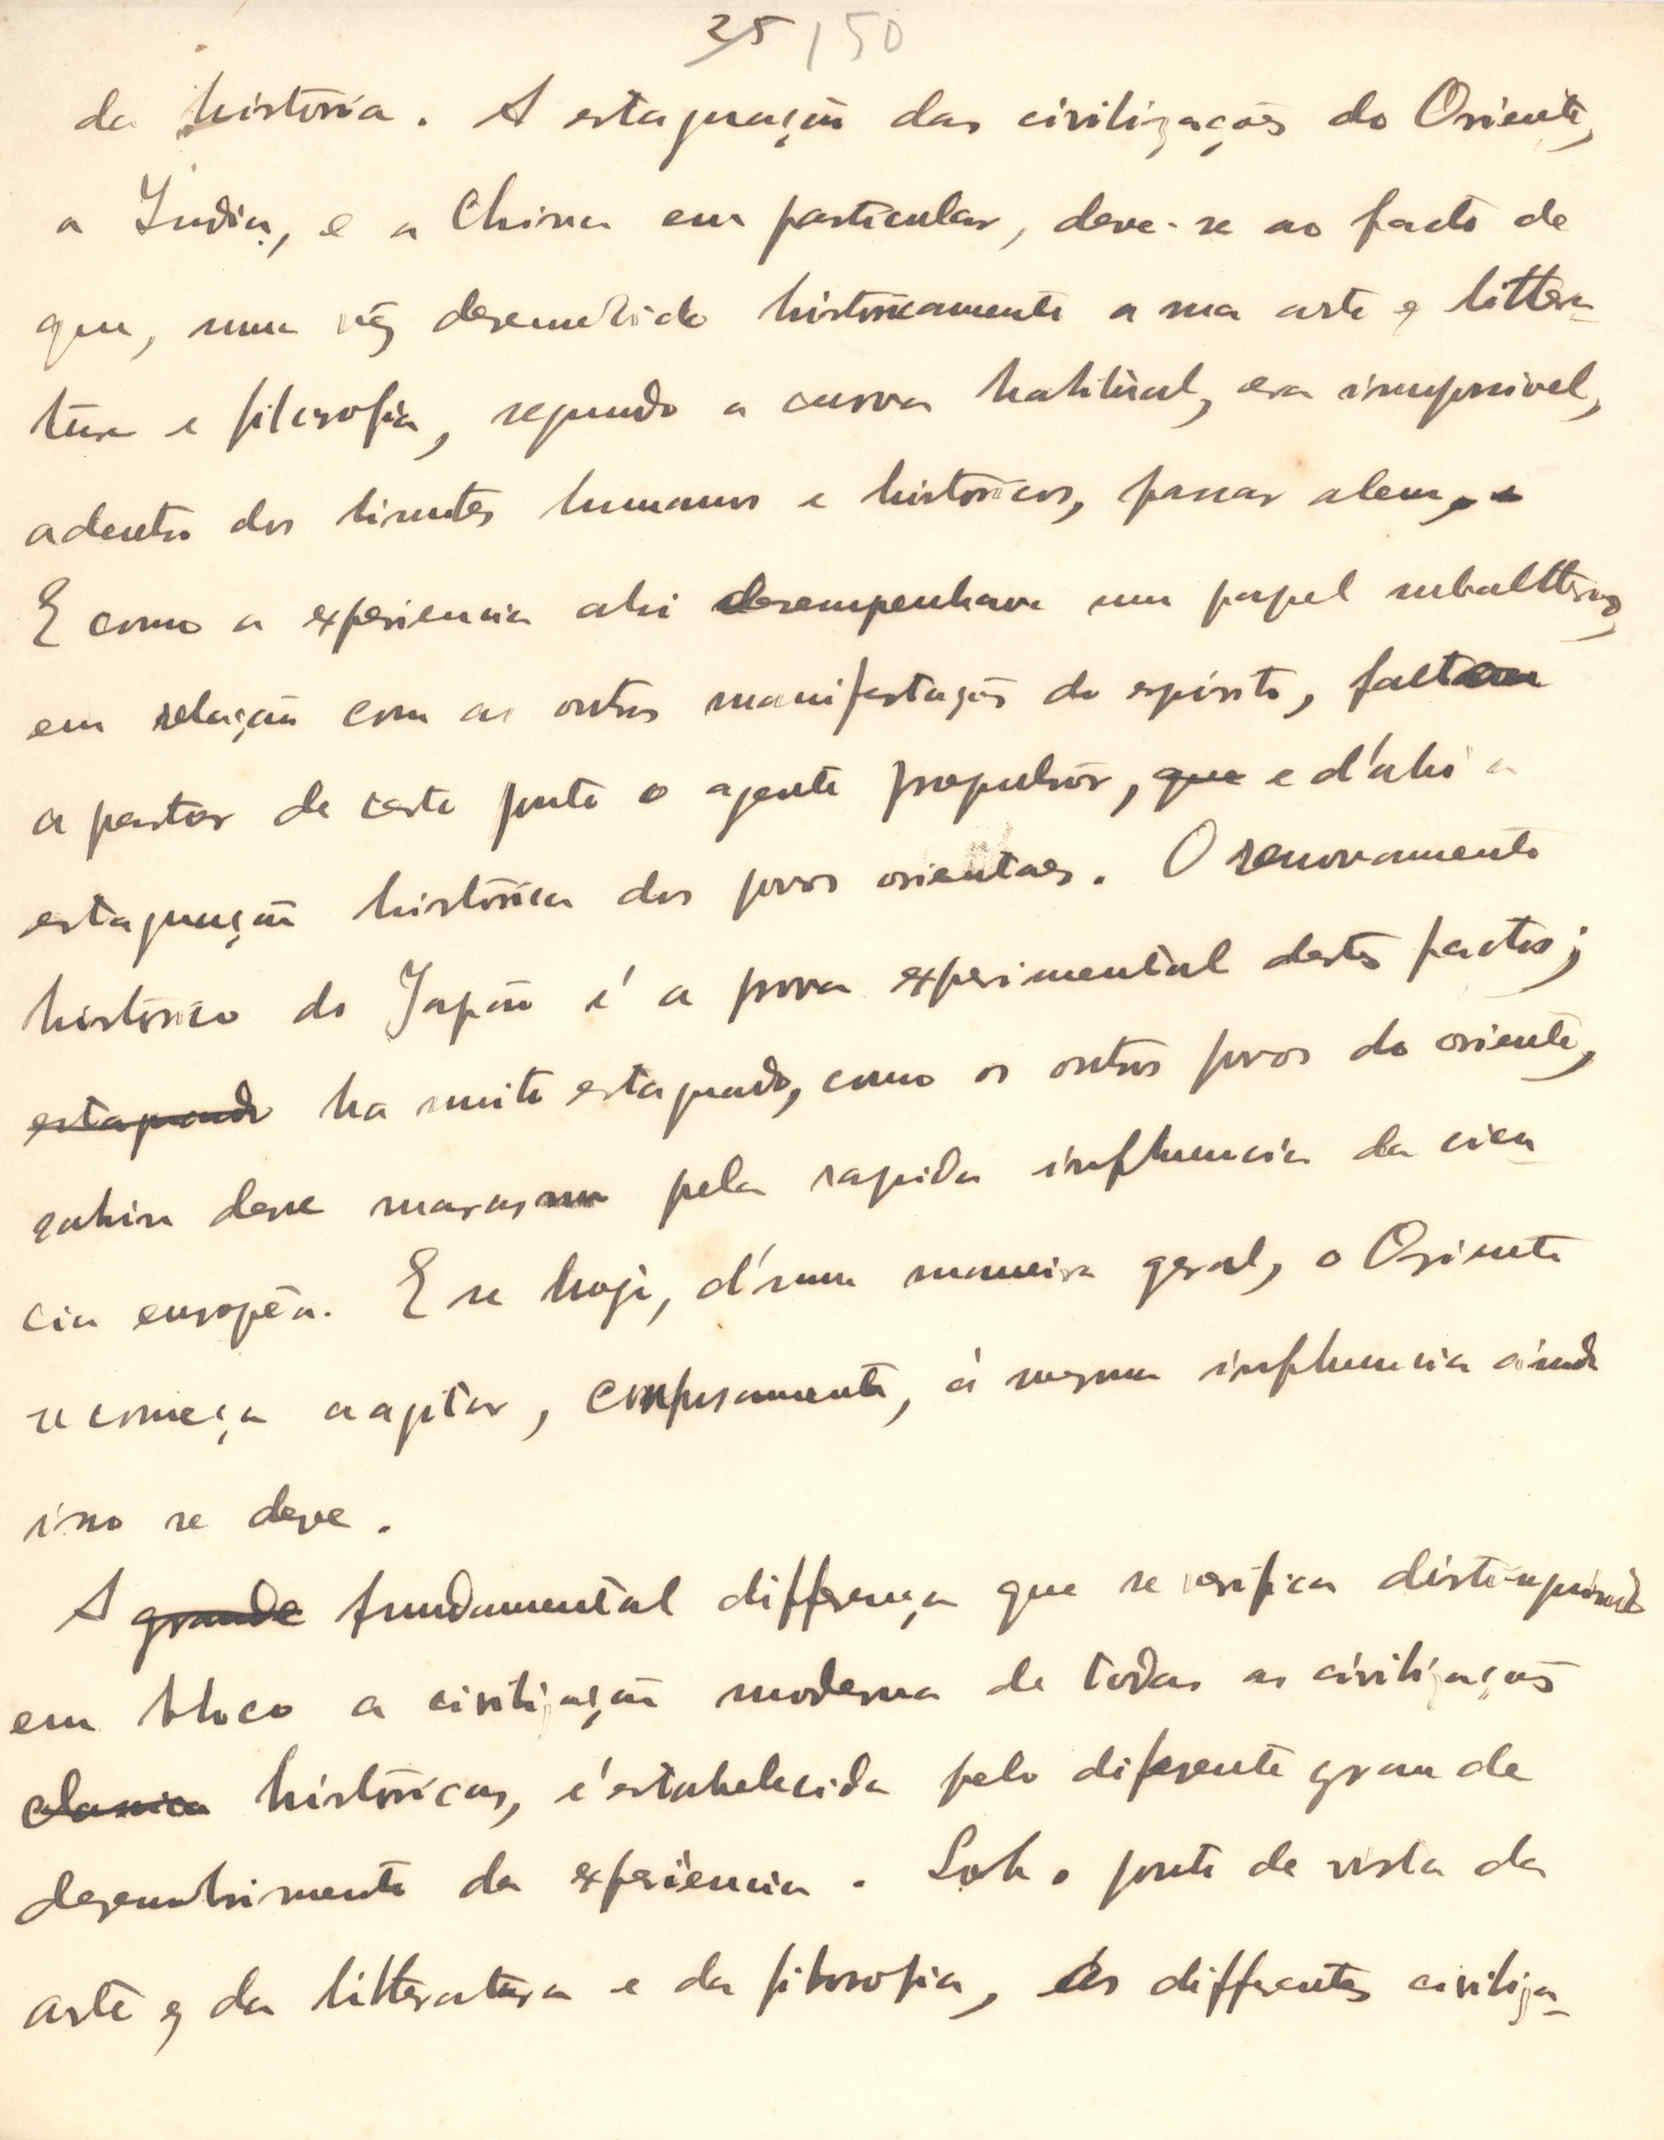 25/50
da historia. A estagnação das civilizações do Oriente,
a India, e a China em particular, deve-se ao facto de
que, uma vez desenvolvido historicamente a sua arte e littera-
tura e filosofia, segundo a curva habitual, era impossivel,
adentro dos limites humanos e historicos, passar alem,
E como a experiencia ahi desempenhava um papel subalterno,
em relação com as outras manifestações do espirito, faltou
a partir de certo ponto o agente propulsôr, que e d'ahi a
estagnação historica dos povos orientaes. O renovamento
historico do Japão é a prova experimental destes factos;
estagnado ha muito estagnado, como os outros povos do oriente,
sahiu desse marasmo pela rapida influencia da scien
cia européa. E se hoje, d'uma maneira geral, o Oriente
se começa a agitar, confusamente, á mesma influencia ainda
isso se deve.
A grande fundamental differença que se verifica distinguindo
em bloco a civilização moderna de todas as civilizações
classica historicas, é estabelecida pelo diferente grau de
desenvolvimento da experiencia. Sob o ponto de vista da
arte e da litteratura e da filosofia, as differentes civiliza-